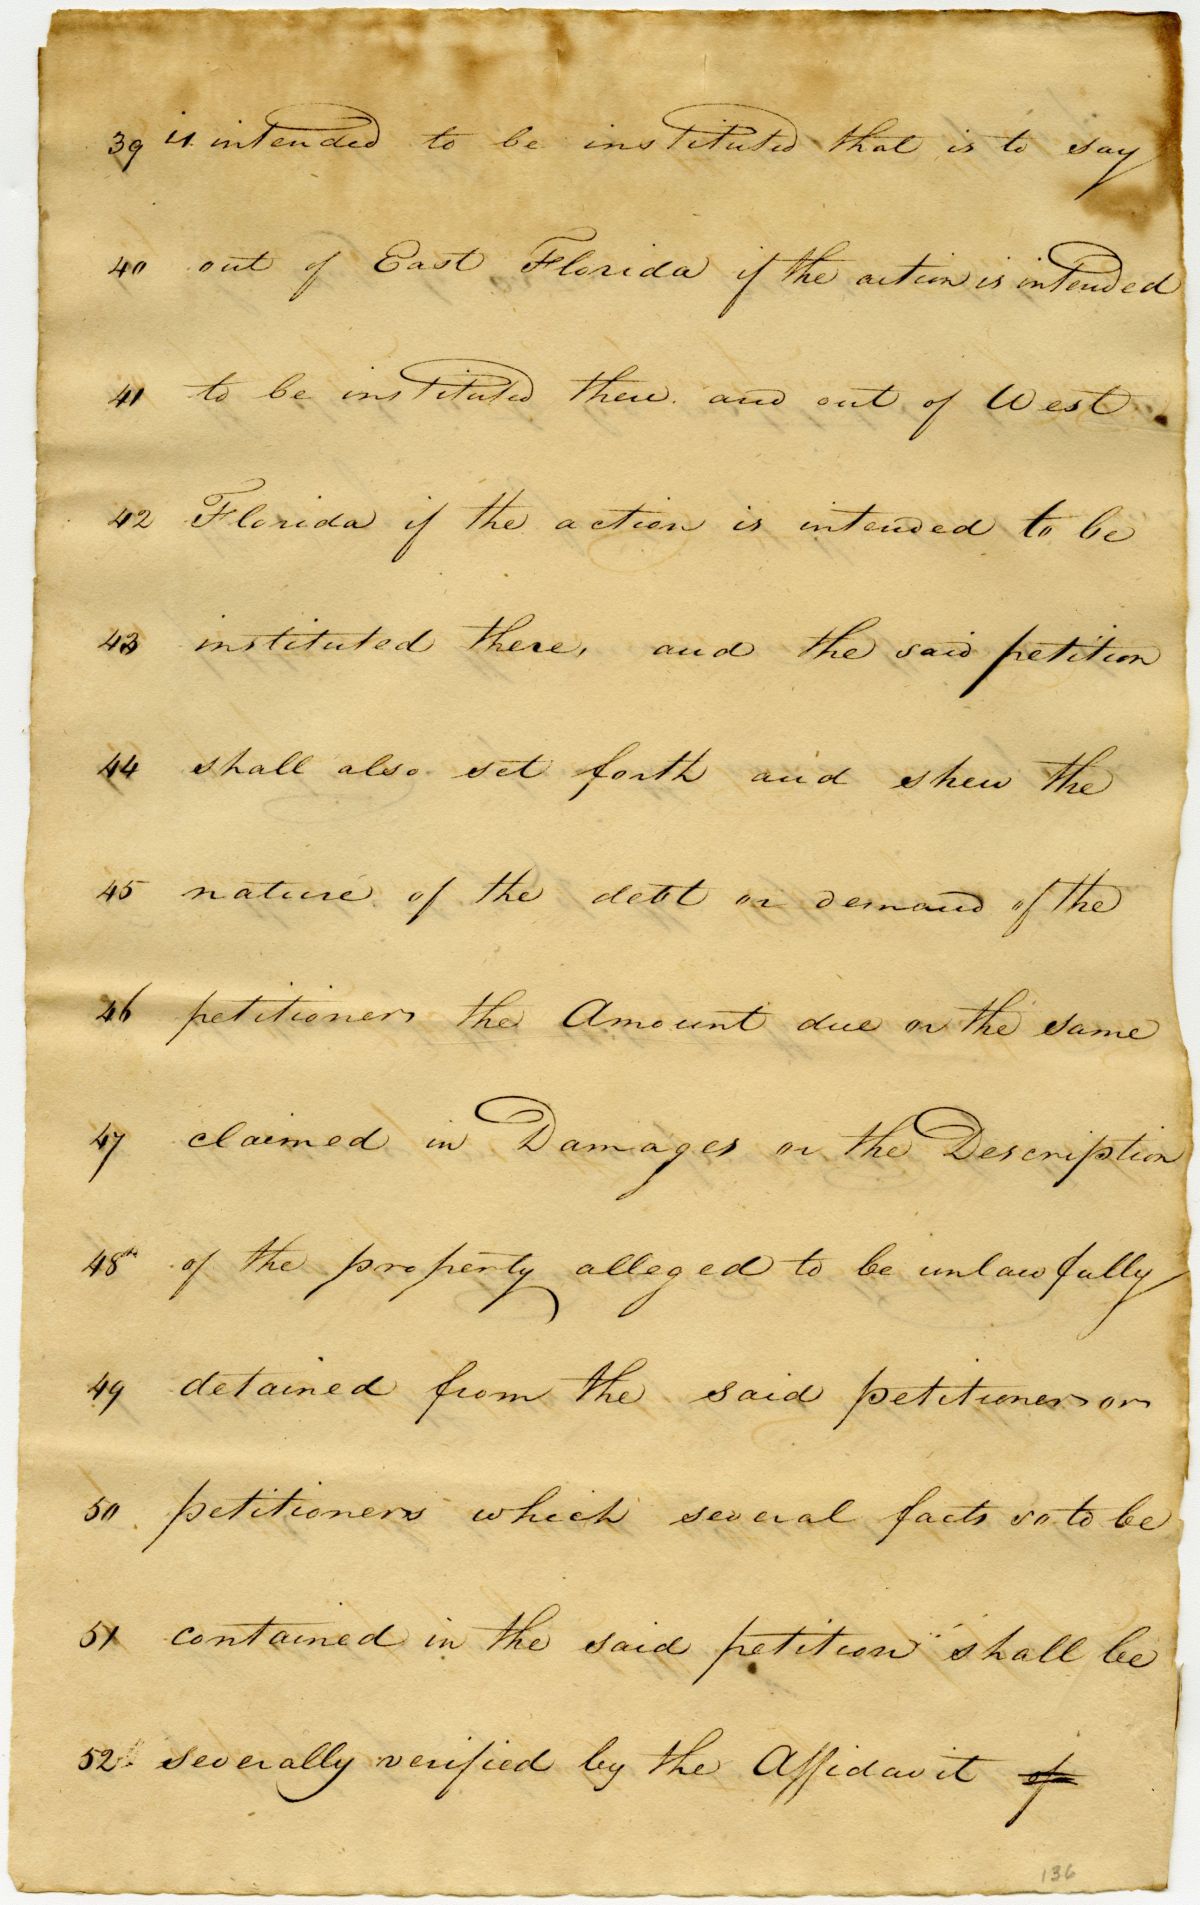 39 is intended to be instituted that is to say
40 out of East Florida if the action is intended
41 to be instituted there and out of West
42 Florida if the action is intended to be
43 instituted there, and the said petition
44 shall also set forth and shew the
45 nature of the debt or demand of the
46 petitioners the Amount due or the same
47 claimed in Damages or the Description
48 of the property alleged to be unlawfully
49 detained from the said petitioner or
50 petitioners which several facts so to be
51 contained in the said petition shall be
52 severally verified by the Affidavit of
136